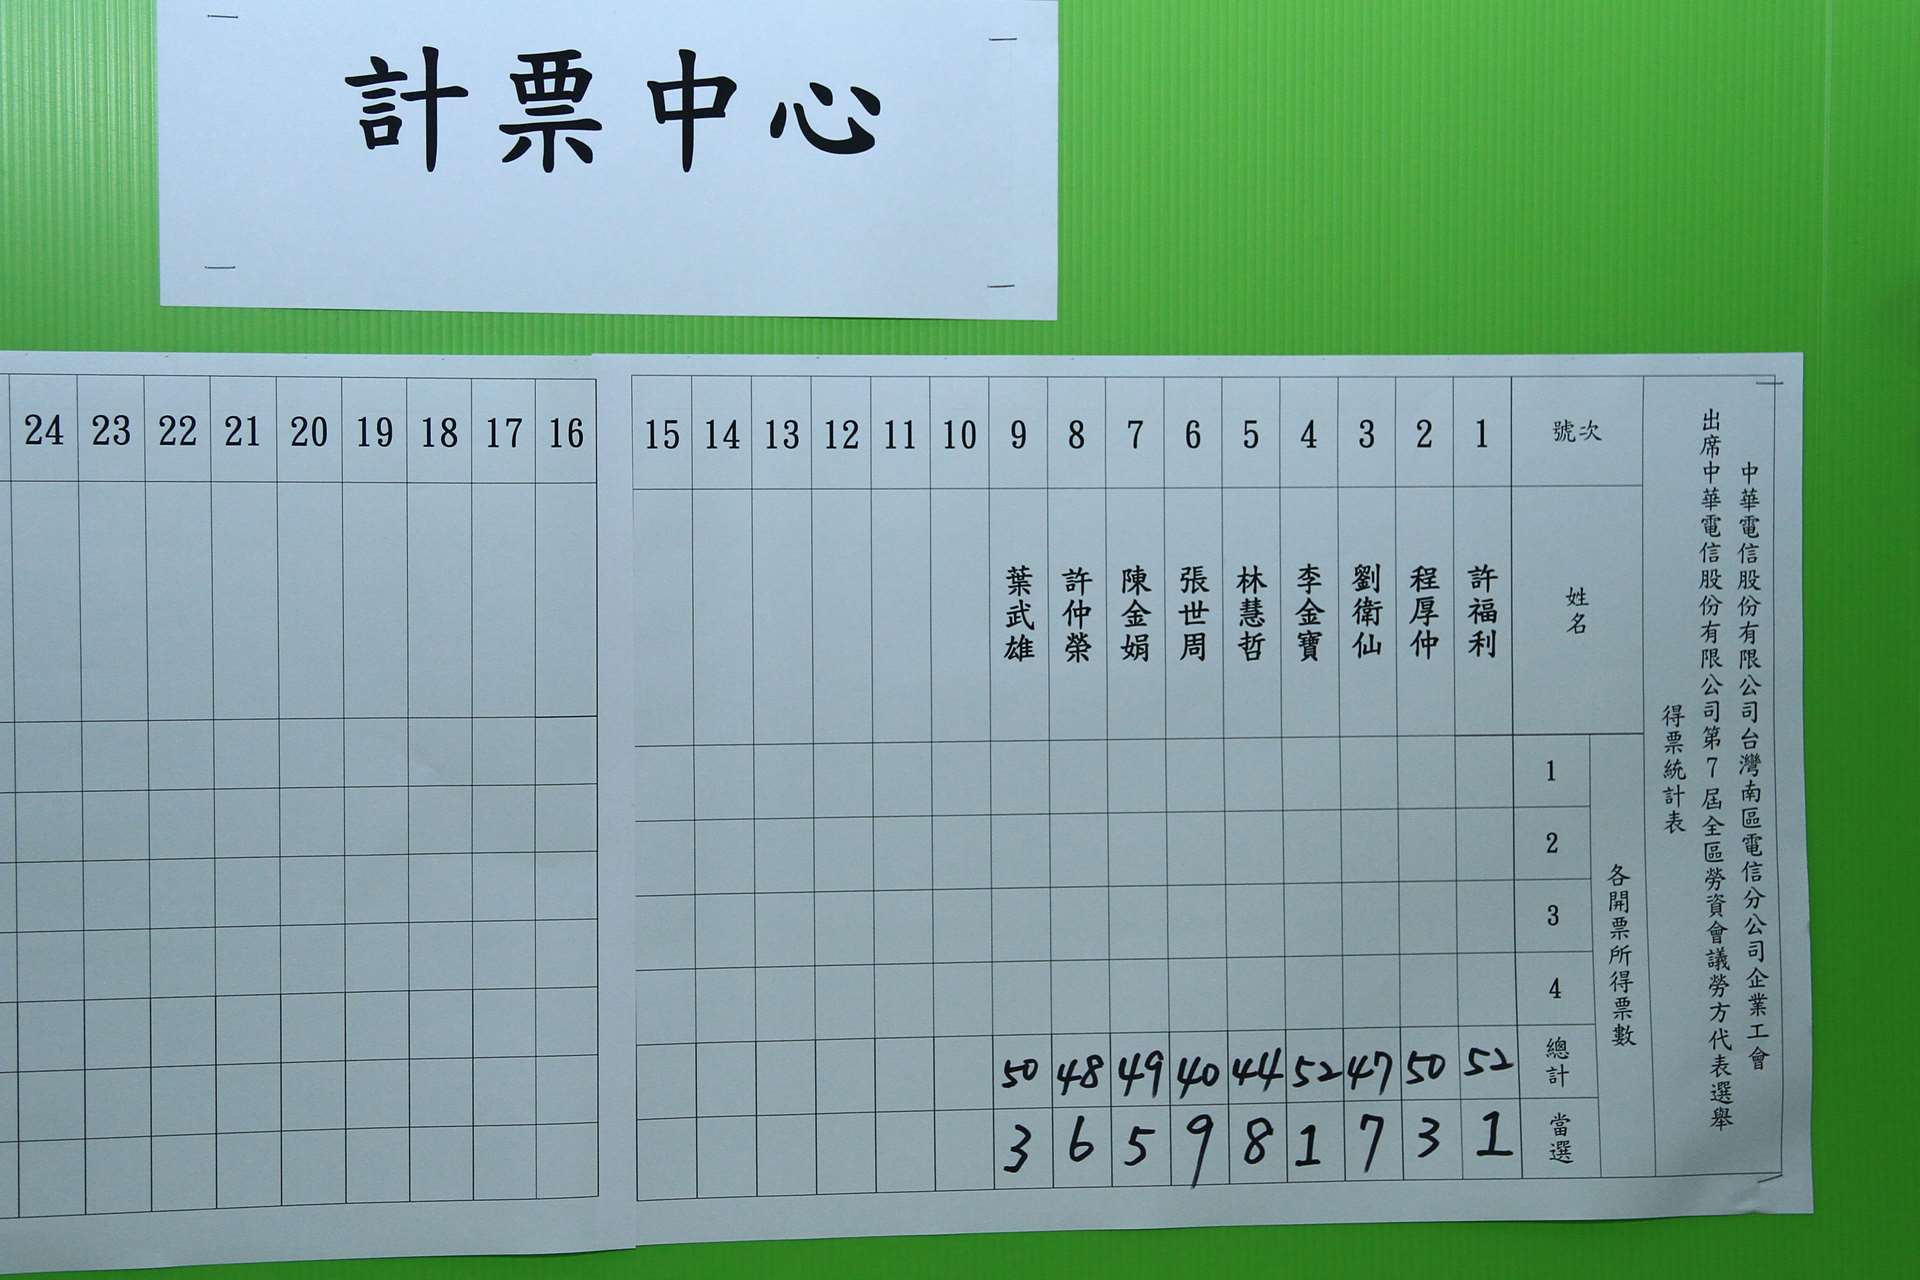 計票中心
中華電信股份有限公司台灣南區電信分公司企業工會
出席中華電信股份有限公司第7屆全區勞資會議勞方代表選舉
得票統計表
號次
姓名
各開票所得票數
1
2
3
4
總計
當選
1 許福利 52 1
2 程厚仲 50 3
3 劉衛仙 47 7
4 李金寶 52 1
5 林慧哲 44 8
6 張世周 40 9
7 陳金娟 49 5
8 許仲榮 48 6
9 葉武雄 50 3
10
11
12
13
14
15
16
17
18
19
20
21
22
23
24